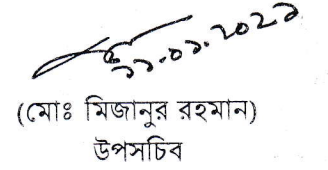 ১১.০১.২০২১
(মোঃ মিজানুর রহমান)
উপসচিব